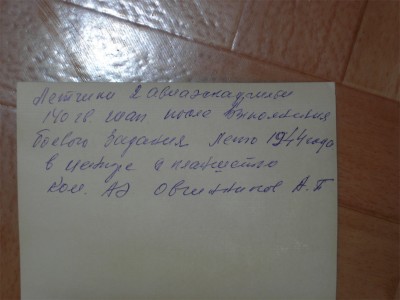 Летчики 2 авиаэскадрильи
140 гв шап после выполнения
боевого задания Лето 1944 года
в центре с планшетом
Ком. АЭ Овчинников А.П